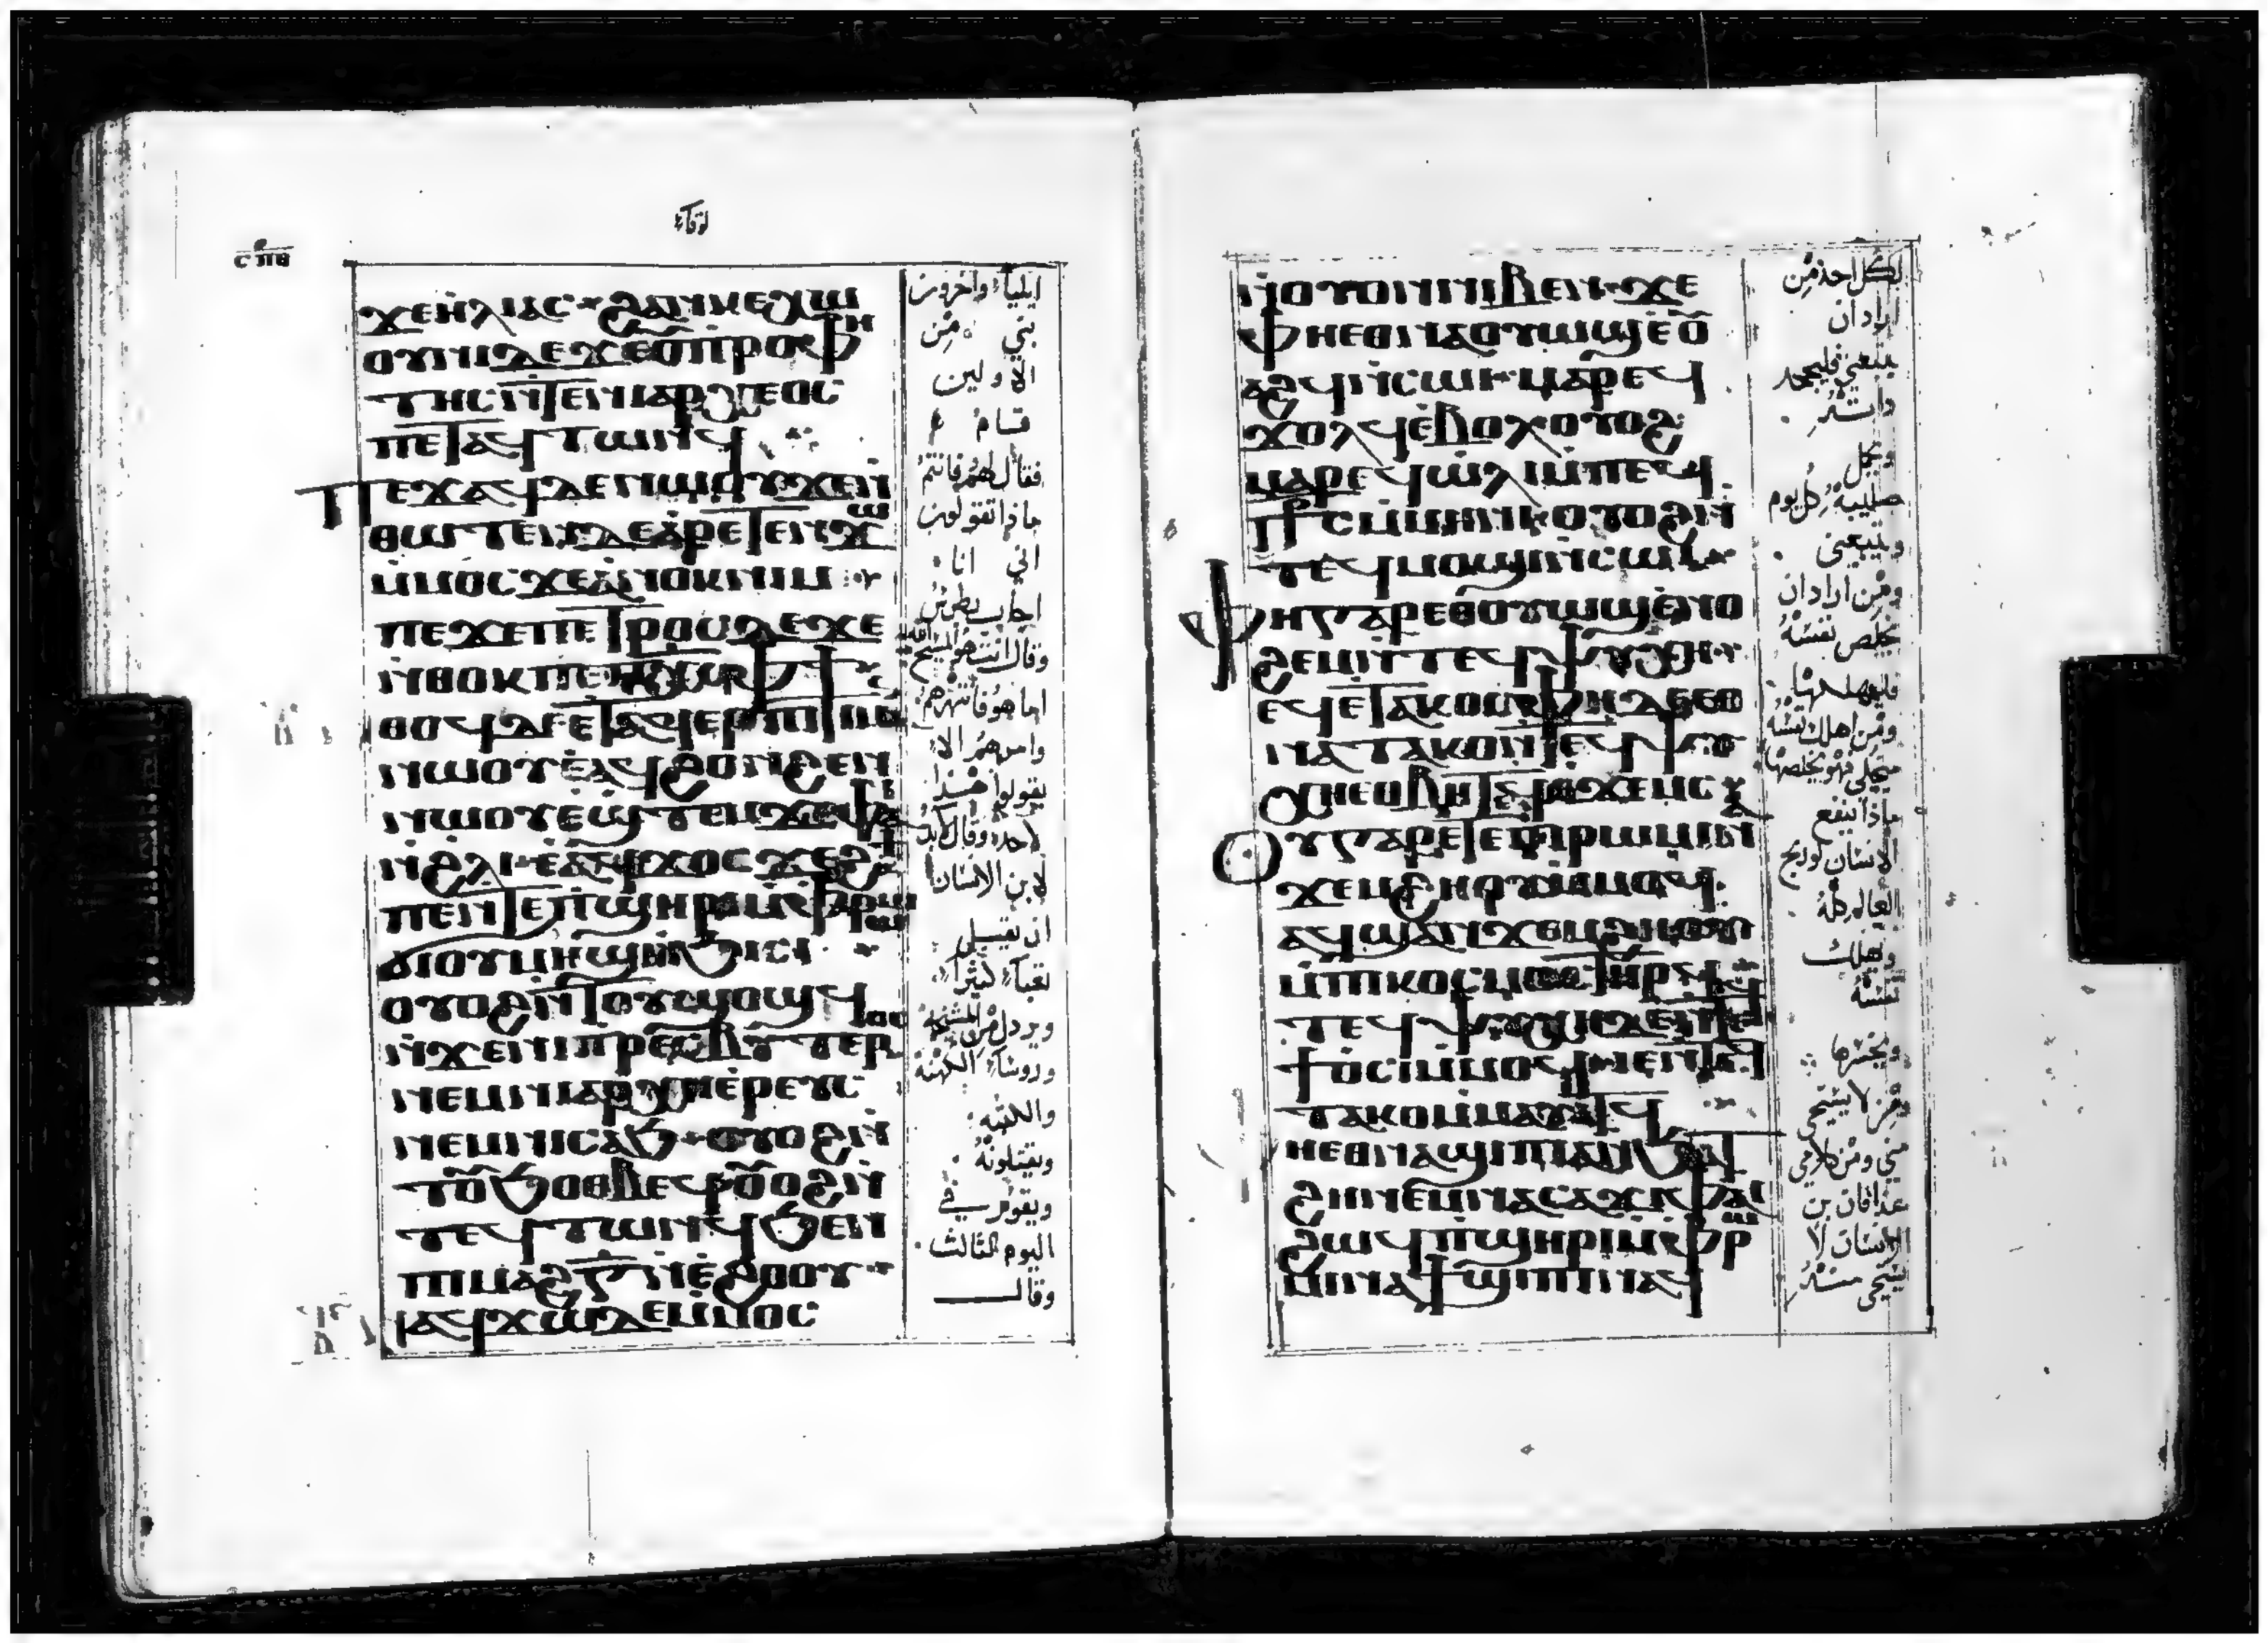 لوقا
ⲥ̅ⲡ̅ⲑ̅
ϫⲉⲏⲗⲓⲁⲥ ϩⲁⲛⲕⲉⲭⲱ
ⲟⲩⲛⲓⲇⲉϫⲉⲟⲩⲡⲣⲟⲫⲏ
ⲧⲏⲥⲛ̀ⲧⲉⲛⲓⲁⲣⲭⲉⲟⲥ
ⲡⲉⲧⲁϥⲧⲱⲛϥ
ⲡⲉϫⲁϥⲇⲉⲛⲱⲟⲩϫⲉⲛ̀
ⲑⲱⲧⲉⲛⲇⲉⲁ̀ⲣⲉⲧⲉⲛϫⲱ
ⲙ̀ⲙⲟⲥϫⲉⲁⲛⲟⲕⲛⲓⲙ
ⲡⲉϫⲉⲡⲉⲧⲣⲟⲥⲇⲉϫⲉ
ⲛ̀ⲑⲟⲕⲡⲉ
ⲑⲟϥⲇⲉⲉⲧⲁϥⲉⲣⲉⲡⲓⲧⲓⲙⲁⲛ
ⲛⲱⲟⲩⲉ̀ⲁϥϩⲟⲛϩⲉⲛ
ⲛⲱⲟⲩⲉ̀ϣⲧⲉⲙϫⲉⲫⲁⲓ
ⲛ̀ϩⲗⲓ ⲉ̀ⲁϥϫⲟⲥϫⲉϩⲱϯ
ⲡⲉⲛⲧⲉⲡϣⲏⲣⲓⲙ̀ⲫⲣⲱⲙⲓ
ϭⲓⲟⲩⲙⲏϣⲛ̀ϧⲓⲥⲓ
ⲟⲩⲟϩⲛ̀ⲧⲟⲩϣⲟϣϥ
ⲛ̀ϫⲉⲛⲓⲡⲣⲉⲥⲃⲩⲧⲉⲣⲟⲥ
ⲛⲉⲙⲛⲓⲁⲣⲭⲏⲉ̀ⲣⲉⲩⲥ
ⲛⲉⲙⲛⲓⲥⲁϧ ⲟⲩⲟϩⲛ̀
ⲧⲟⲩϧⲟⲑⲃⲉϥⲟⲩⲟϩⲛ̀
ⲧⲉϥⲧⲱⲛϥϧⲉⲛ
ⲡⲓⲙⲁϩⲅ̅ⲛ̀ⲉ̀ϩⲟⲟⲩ
ⲛⲁϥϫⲱⲇⲉⲙ̀ⲙⲟⲥ
ايلياء واخرون
نبي من
الاولين
قام
فقال لهم فانتم
ماذا تقولون
اني انا
اجاب بطرس
وقال انت هو المسيح الله
اما هو فانتهرهم
وامرهم الا
يقولوا هذا
لاحد وقال لابد
لابن الانسان
ان يقبل
تعبا كثيرا
ويرذل من المشيخة
وروساء الكهنة
والكتبه
ويقتلونه
ويقوم في
اليوم الثالث
وقال
ⲛ̀ⲟⲩⲟⲛⲛⲓⲃⲉⲛ ϫⲉ
ⲫⲏⲉⲑⲛⲁⲟⲩⲱϣⲉ̀ⲟⲩ
ⲁϩϥⲛ̀ⲥⲱⲓ ⲙⲁⲣⲉϥ
ϫⲟⲗϥⲉ̀ⲃⲟⲗⲟⲩⲟϩ
ⲙⲁⲣⲉϥⲱ̀ⲗⲓⲙ̀ⲡⲉϥ
ⲥ̅ⲙ̀ⲙⲏⲛⲓ ⲟⲩⲟϩⲛ̀
ⲧⲉϥⲙⲟϣⲓⲛ̀ⲥⲱⲓ
ⲫⲏⲅⲁⲣⲉⲑⲟⲩⲱϣⲉ̀ⲛⲟ
ϩⲉⲙⲛ̀ⲧⲉϥⲯⲩⲭⲏ
ⲉϥⲉ̀ⲧⲁⲕⲟⲥ ⲫⲏⲇⲉⲉⲑ
ⲛⲁⲧⲁⲕⲟⲛ̀ⲧⲉϥⲯⲩ
ⲭⲏⲉⲑⲃⲏⲧ ⲉϥⲉ̀ϫⲉⲙⲥ
ⲟⲩⲅⲁⲣⲉⲧⲉⲫⲣⲱⲙⲓⲛⲁ
ϫⲉⲙϩⲏⲟⲩⲙ̀ⲙⲟϥ
ⲁϥϣⲁⲛϫⲉⲙϩⲏⲟⲩ
ⲙ̀ⲡⲓⲕⲟⲥⲙⲟⲥⲧⲏⲣϥ
ⲧⲉϥⲯⲩⲭⲏⲇⲉⲛ̀ⲧⲉϥ
ϯⲟⲥⲓⲙ̀ⲙⲟϥ ⲓⲉⲛ̀ⲧⲉϥ
ⲧⲁⲕⲟⲙ̀ⲙⲁⲩⲁⲧϥ
ⲫⲏⲉⲑⲛⲁϣⲓⲡⲓϧⲁⲧ
ϩⲏⲛⲉⲙⲛⲁⲥⲁϫⲓ ⲫⲁⲓ
ϩⲱϥⲡ̀ϣⲏⲣⲓⲙ̀ⲫⲣⲱ
ⲙⲓⲛⲁϯϣⲓⲡⲓⲛⲁϥ
لكل احد من
اراد ان
يتبعني فليجحد
ذاته
ويحمل
صليبه كل يوم
ويتبعني
ومن اراد ان
يخلص نفسه
فليهلكها
ومن اهلك نفسه
من اجلي فهو يخلصها
ماذا ينفع
الانسان لو ربح
العالم كله
ويهلك
نفسه
ويخسرها
من لا يستحي
مني ومن كلامي
هذا فان بن
الانسان لا
يستحي منه